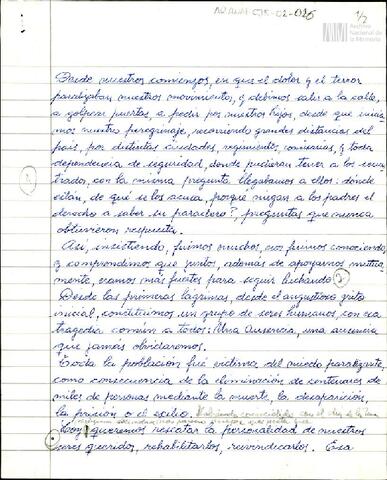 1/2
Archivo
Nacional de
la Memoria
Desde nuestros comienzos, en que el dolor y el terror
paralizaban nuestros movimientos, y debimos salir a la calle,
a golpear puertas, a pedir por nuestros hijos, desde que inicia
mos nuestro peregrinaje, recorriendo grandes distancias del
país, por distintas ciudades, regimientos, comisarías, y toda
dependencia de seguridad, donde pudieran tener a los
con la misma pregunta llegábamos a ellos: dónde
están, de qué se los acusa, porqué niegan a los padres el
derecho a saber su paradero?, preguntas que nunca
obtuvieron respuesta.
Así, insistiendo, fuimos muchos, nos fuimos conociendo,
y comprendimos que juntos, además de apoyarnos mutua
mente, éramos más fuertes para seguir luchando
Desde las primeras lágrimas, desde el angustioso grito
inicial, constituimos un grupo de seres humanos con esa
tragedia común a todos: Una Ausencia, una ausencia
que jamás olvidaremos.
Toda la población fué víctima del miedo paralizante,
como consecuencia de la eliminación de centenares de
miles de personas mediante la muerte, la desaparición,
la prisión o el exilio.
Hoy queremos rescatar la personalidad de nuestros
seres queridos, rehabilitarlos, reivindicarlos. Esa